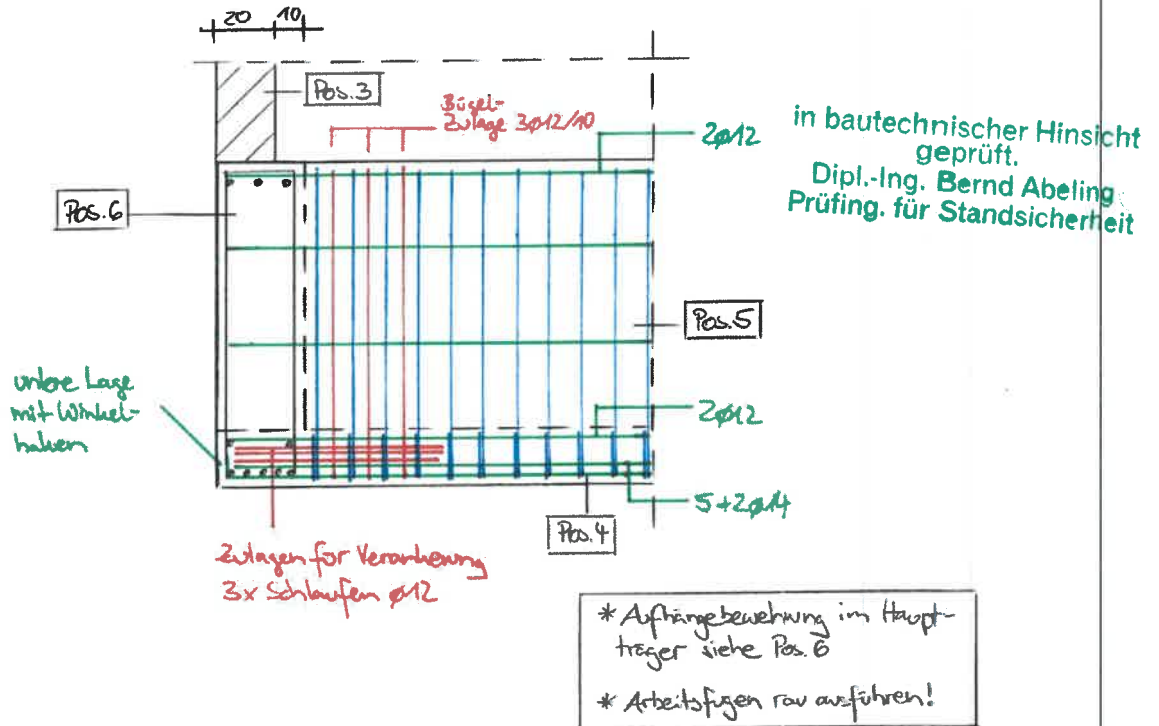 20 10
Pos.3
Bügel-
Zulage 3ø12/10
2ø12
in bautechnischer Hinsicht
geprüft.
Dipl.-Ing. Bernd Abeling
Prüfing. für Standsicherheit
Pos.6
Pos.5
untere Lage
mit Winkel-
haken
2ø12
5+2ø14
Pos.4
Zulagen für Verankerung
3x Schlaufen ø12
* Aufhängebewehrung im Haupt-
träger siehe Pos.6
* Arbeitsfugen rau ausführen!